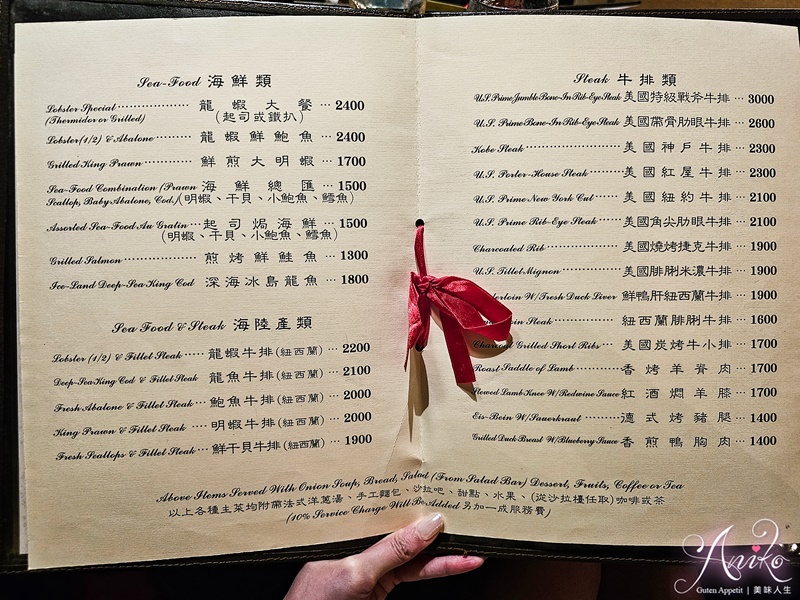 Sea-Food 海鮮類
Lobster Special 龍蝦大餐 2400
(Thermidor or Grilled) (起司或鐵扒)
Lobster(1/2) & Abalone 龍蝦鮮鮑魚 2400
Grilled King Prawn 鮮煎大明蝦 1700
Sea-Food Combination (Prawn 海鮮總匯 1500
Scallop, Baby Abalone, Cod.) (明蝦、干貝、小鮑魚、鱈魚)
Assorted Sea-Food Au Gratin 起司焗海鮮 1500
(明蝦、干貝、小鮑魚、鱈魚)
Grilled Salmon 煎烤鮮鮭魚 1300
Ice-Land Deep-Sea King Cod 深海冰島龍魚 1800
Sea Food & Steak 海陸產類
Lobster (1/2) & Fillet Steak 龍蝦牛排(紐西蘭) 2200
Deep-Sea King Cod & Fillet Steak 龍魚牛排(紐西蘭) 2100
Fresh Abalone & Fillet Steak 鮑魚牛排(紐西蘭) 2000
King Prawn & Fillet Steak 明蝦牛排(紐西蘭) 2000
Fresh Scallops & Fillet Steak 鮮干貝牛排(紐西蘭) 1900
Steak 牛排類
U.S. Prime Jumble Bone-In Rib-Eye Steak 美國特級戰斧牛排 3000
U.S. Prime Bone-In Rib-Eye Steak 美國帶骨肋眼牛排 2600
Kobe Steak 美國神戶牛排 2300
U.S. Porter-House Steak 美國紅屋牛排 2300
U.S. Prime New York Cut 美國紐約牛排 2100
U.S. Prime Rib-Eye Steak 美國角尖肋眼牛排 2100
Charcoaled Rib 美國燒烤捷克牛排 1900
U.S. Fillet Mignon 美國腓脷米濃牛排 1900
W/Fresh Duck Liver 鮮鴨肝紐西蘭牛排 1900
Steak 紐西蘭腓脷牛排 1600
Charcoal Grilled Short Ribs 美國炭烤牛小排 1700
Roast Saddle of Lamb 香烤羊脊肉 1700
Stewed Lamb Knee W/Redwine Sauce 紅酒燜羊膝 1700
Eis-Bein W/Sauerkraut 德式烤豬腿 1400
Grilled Duck Breast W/Blueberry Sauce 香煎鴨胸肉 1400
Above Items Served With Onion Soup, Bread, Salad (From Salad Bar) Dessert, Fruits, Coffee or Tea
以上各種主菜均附帶法式洋蔥湯、手工麵包、沙拉吧、甜點、水果、(從沙拉檯任取)咖啡或茶
(10% Service Charge Will Be Added 另加一成服務費)
Aniko
Guten Appetit | 美味人生